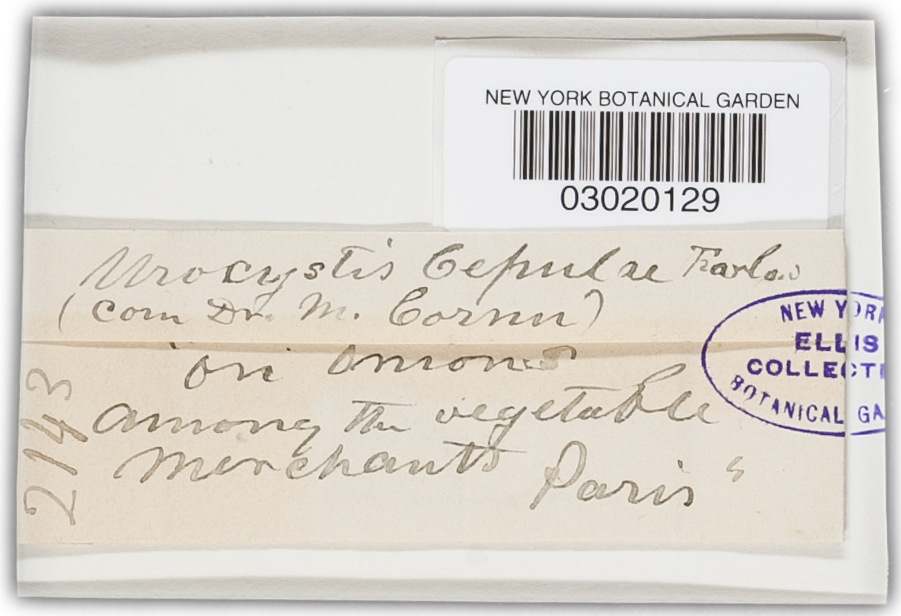 NEW YORK BOTANICAL GARDEN
03020129
Urocystis Cepulae Farlow
(Com Dr. M. Cornu)
on onions
among the vegetable
merchants Paris"
2143
NEW YOR
ELLIS
COLLECTI
BOTANICAL GA